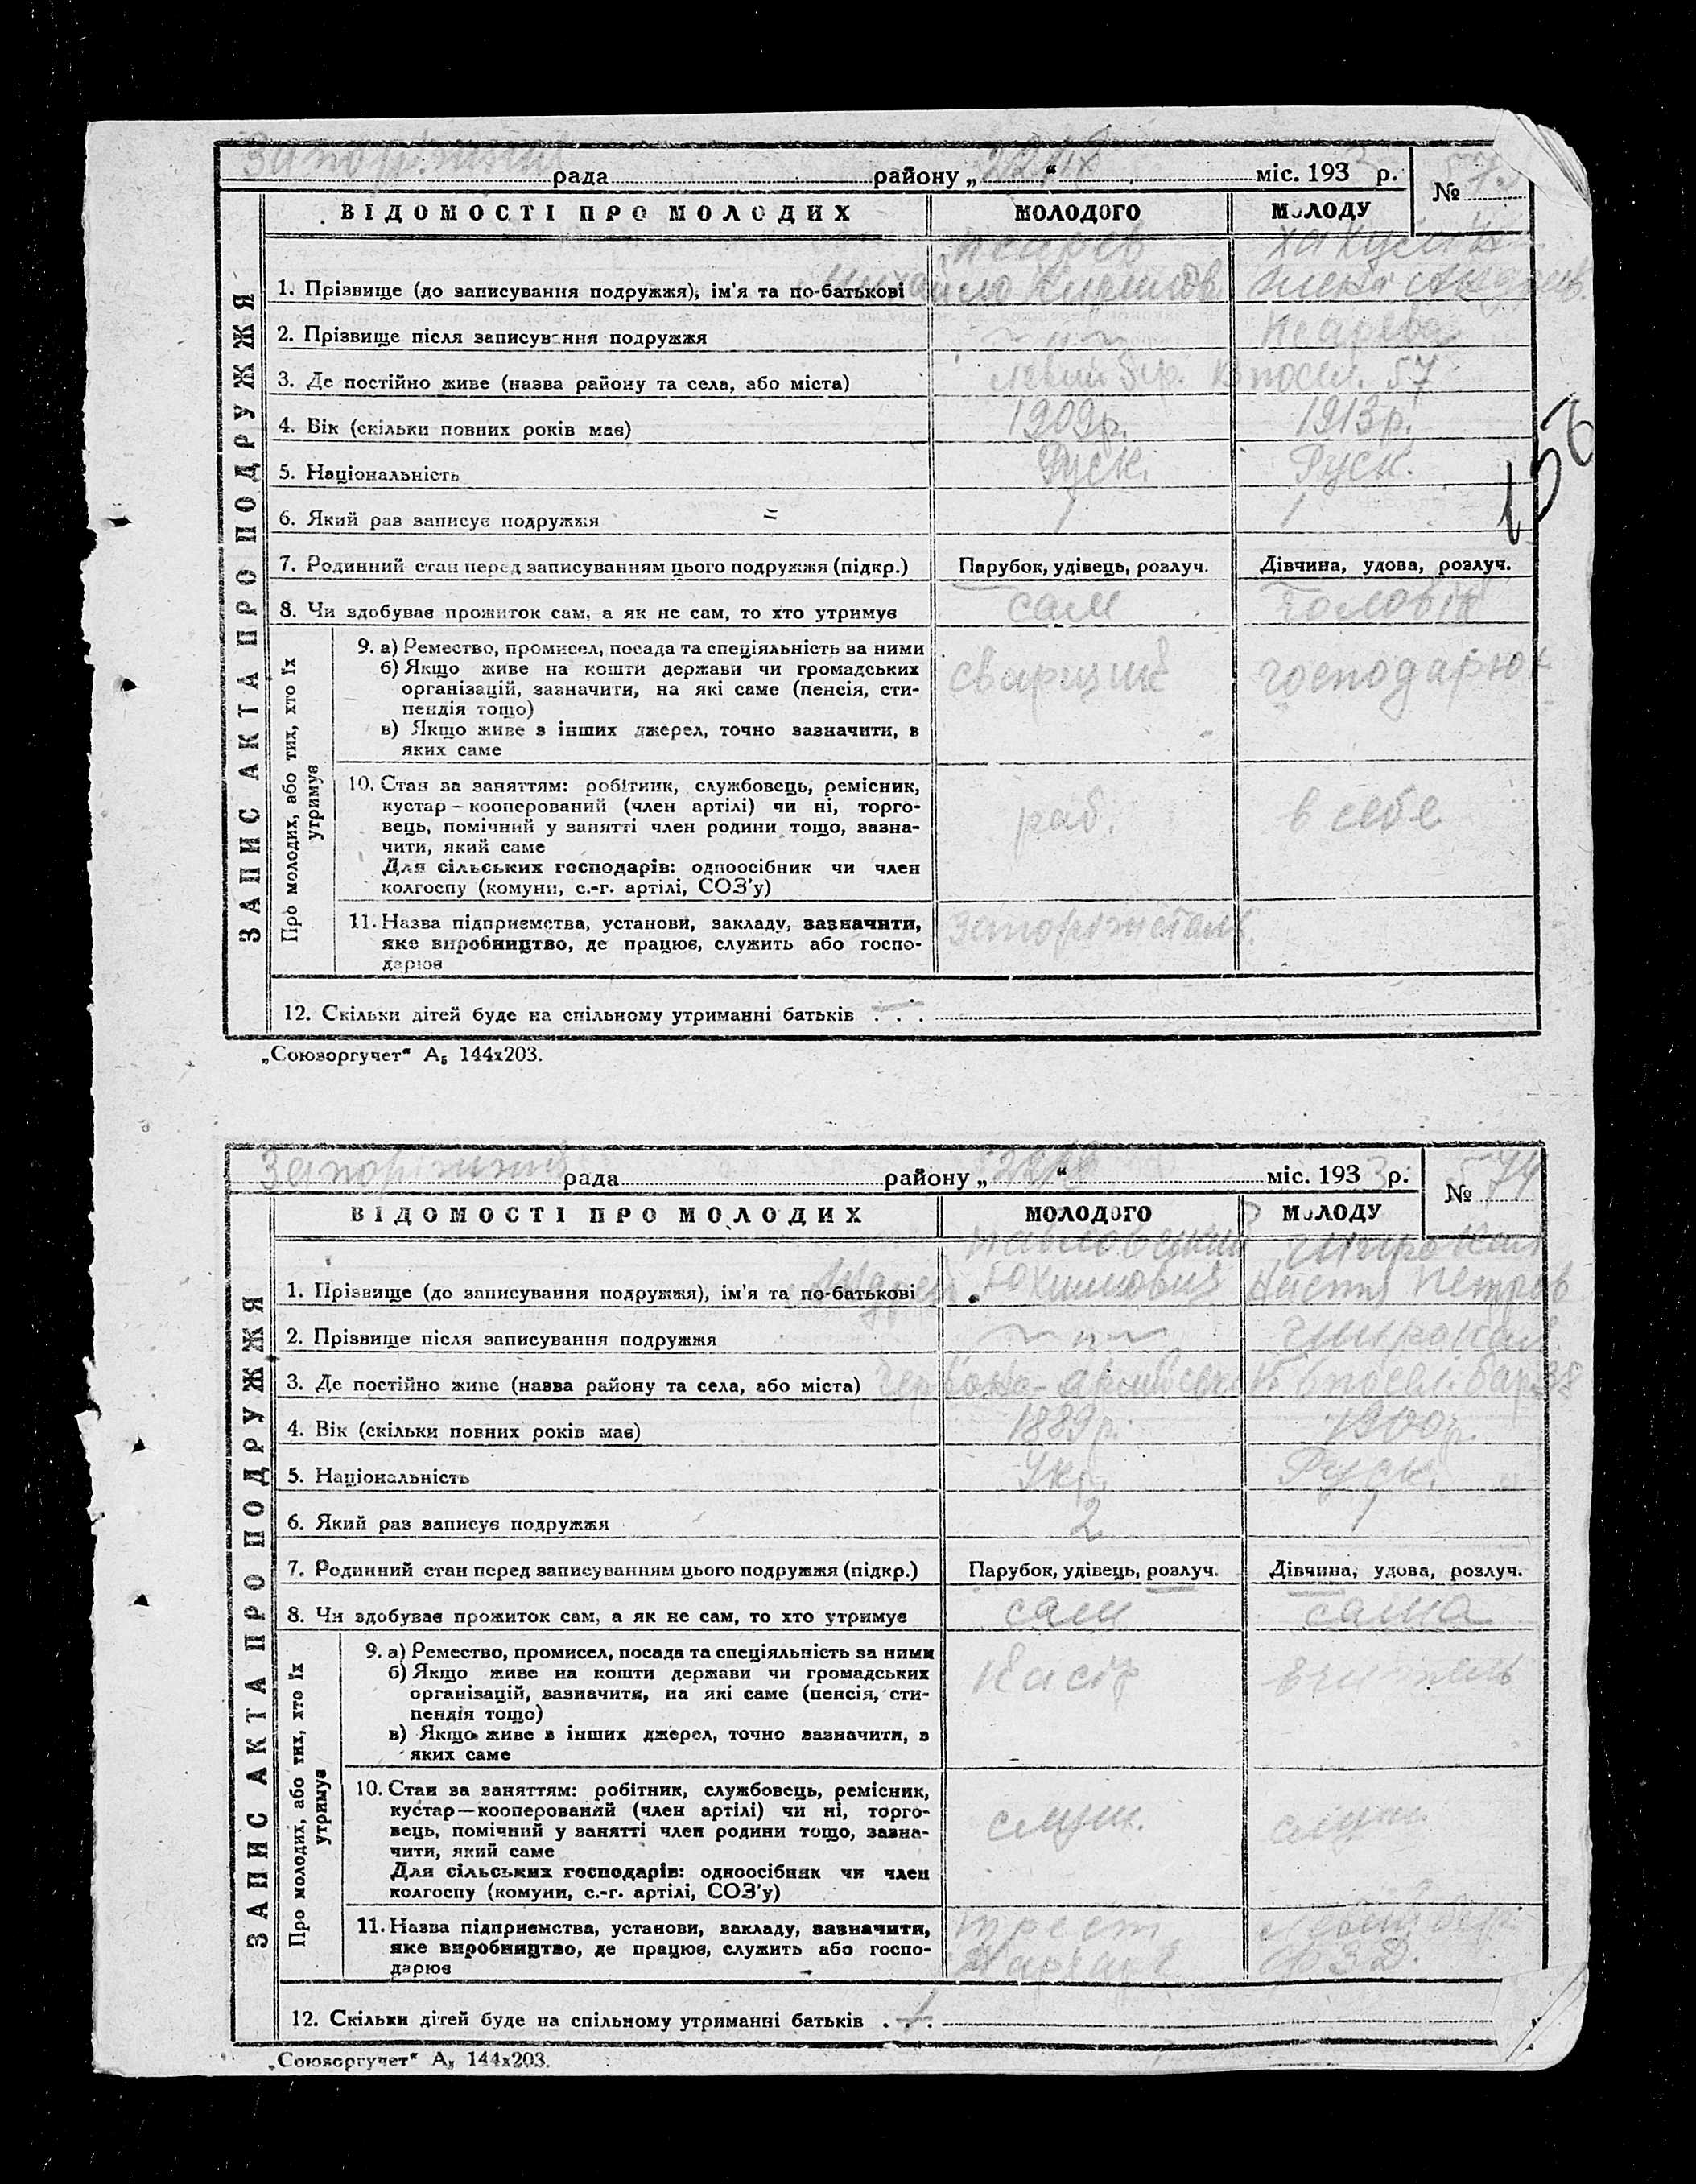 Запоріжжя рада району „22/IX“ міс. 1933 р. № 57
ВІДОМОСТІ ПРО МОЛОДИХ МОЛОДОГО МОЛОДУ
ЗАПИС АКТА ПРО ПОДРУЖЖЯ
1. Прізвище (до записування подружжя), ім'я та по-батькові Михайло Кирилов
2. Прізвище після записування подружжя — „ —
3. Де постійно живе (назва району та села, або міста) Левий бер. посел. 57
4. Вік (скільки повних років має) 1909р. 1913р.
5. Національність Руск. Руск.
6. Який раз записує подружжя = 1 1
7. Родинний стан перед записуванням цього подружжя (підкр.) Парубок, удівець, розлуч. Дівчина, удова, розлуч.
8. Чи здобував прожиток сам, а як не сам, то хто утримує сам чоловік
Про молодих, або тих, хто їх утримує
9. а) Ремество, промисел, посада та спеціяльність за ними
б) Якщо живе на кошти держави чи громадських
організацій, зазначити, на які саме (пенсія, сти-
пендія тощо)
в) Якщо живе з інших джерел, точно зазначити, з
яких саме
сварщик господарює
10. Стан за заняттям: робітник, службовець, ремісник,
кустар — кооперований (член артілі) чи ні, торго-
вець, помічний у занятті член родини тощо, зазна-
чити, який саме
Для сільських господарів: одноосібник чи член
колгоспу (комуни, с.-г. артілі, СОЗ'у)
раб. в себе
11. Назва підприємства, установи, закладу, зазначити,
яке виробництво, де працює, служить або госпо-
дарює
Запоріжсталь.
12. Скільки дітей буде на спільному утриманні батьків . — .
„Союзоргучет“ А₅ 144х203.
156
Запоріжжя рада району „ “ міс. 1933р. № 574
ВІДОМОСТІ ПРО МОЛОДИХ МОЛОДОГО МОЛОДУ
ЗАПИС АКТА ПРО ПОДРУЖЖЯ
Павловський
1. Прізвище (до записування подружжя), ім'я та по-батькові Андрей Настя Петров
2. Прізвище після записування подружжя — „ —
3. Де постійно живе (назва району та села, або міста) посел. бар. 38
4. Вік (скільки повних років має) 1889р. 1900р.
5. Національність Укр. Руск.
6. Який раз записує подружжя 2 1
7. Родинний стан перед записуванням цього подружжя (підкр.) Парубок, удівець, розлуч. Дівчина, удова, розлуч.
8. Чи здобував прожиток сам, а як не сам, то хто утримує сам сама
Про молодих, або тих, хто їх утримує
9. а) Ремество, промисел, посада та спеціяльність за ними
б) Якщо живе на кошти держави чи громадських
організацій, зазначити, на які саме (пенсія, сти-
пендія тощо)
в) Якщо живе з інших джерел, точно зазначити, з
яких саме
Касір вчитель
10. Стан за заняттям: робітник, службовець, ремісник,
кустар — кооперований (член артілі) чи ні, торго-
вець, помічний у занятті член родини тощо, зазна-
чити, який саме
Для сільських господарів: одноосібник чи член
колгоспу (комуни, с.-г. артілі, СОЗ'у)
служ. служ.
11. Назва підприємства, установи, закладу, зазначити,
яке виробництво, де працює, служить або госпо-
дарює
трест
12. Скільки дітей буде на спільному утриманні батьків . . .
„Союзоргучет“ А₅ 144х203.